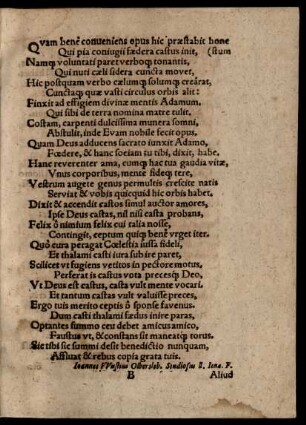 QVam benè conveniens opus hic præstabit hone
Qui pia coniugii fædera castus init, (stum
Namq; voluntati paret verboq; tonantis,
Qui nutu cæli sidera cuncta movet,
Hic postquam verbo cælumq; solumq; creârat,
Cunctaq; quæ vasti circulus orbis alit:
Finxit ad effigiem divinæ mentis Adamum.
Qui sibi de terra nomina matre tulit.
Costam, carpenti dulcissima munera somni,
Abstulit, inde Evam nobile fecit opus.
Quam Deus adducens sacrato iunxit Adamo,
Fœdere, & hanc sociam iu tibi, dixit, habe.
Hanc reverenter ama, cumq; hac tua gaudia vitæ,
Vnus corporibus, mente fideq; tere,
Vestrum augete genus permultis crescite natis
Serviat & vobis quicquid hic orbis habet.
Dixit & accendit castos simul auctor amores,
Ipse Deus castas, nil nisi casta probans,
Felix ô nimium felix cui talia nosse,
Contingit, ceptum quiq; benè vrget iter.
Quò eura peragat Cœlestia iussa fideli,
Et thalami casti iura subire paret,
Scilicet vt fugiens vetitos in pectore motus,
Perferat is castus vota precesq; Deo,
Vt Deus est castus, casta vult mente vocari.
Et tantum castus vult valuisse preces,
Ergo tuis meritò ceptis ô sponse favenus.
Dum casti thalami fædus inire paras,
Optantes summo ceu debet amicus amico,
Faustus vt, & constans sit maneatq; torus.
Sic tibi sic summi desit benedictio nunquam,
Affluat & rebus copia grata tuis.
Ioannes VVustius Olbersleb. Studiosus S. Iena. F.
B Aliud